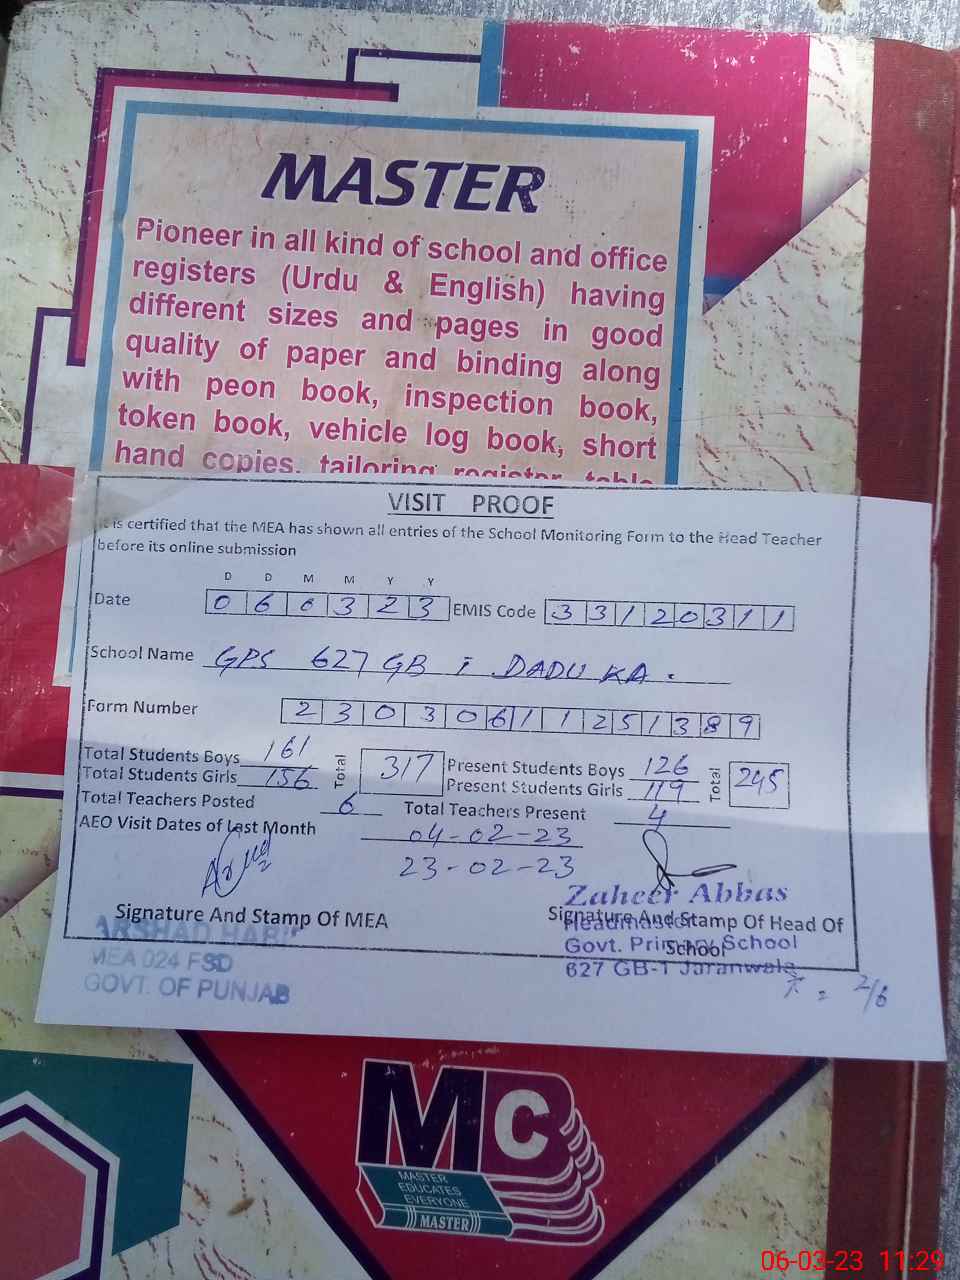 MASTER
Pioneer in all kind of school and office
registers (Urdu & English) having
different sizes and pages in good
quality of paper and binding along
with peon book, inspection book,
token book, vehicle log book, short
hand copies, tailoring register, table
VISIT PROOF
is certified that the MEA has shown all entries of the School Monitoring Form to the Head Teacher
before its online submission
D D M M Y Y
Date 0 6 0 3 2 3 EMIS Code 3 3 1 2 0 3 1 1
School Name GPS 627 GB i DADU KA.
Form Number 2 3 0 3 0 6 1 1 2 5 1 3 8 9
Total Students Boys 161
Total Students Girls 156
Total 317
Present Students Boys 126
Present Students Girls 119
Total 245
Total Teachers Posted 6 Total Teachers Present 4
AEO Visit Dates of Last Month 04-02-23
23-02-23
Zaheer Abbas
Signature And Stamp Of MEA
Signature And Stamp Of Head Of
School
Headmaster
Govt. Primary School
627 GB-1 Jaranwala
ARSHAD HABIB
MEA 024 FSD
GOVT. OF PUNJAB
2/6
MC
MASTER
EDUCATES
EVERYONE
MASTER
06-03-23 11:29